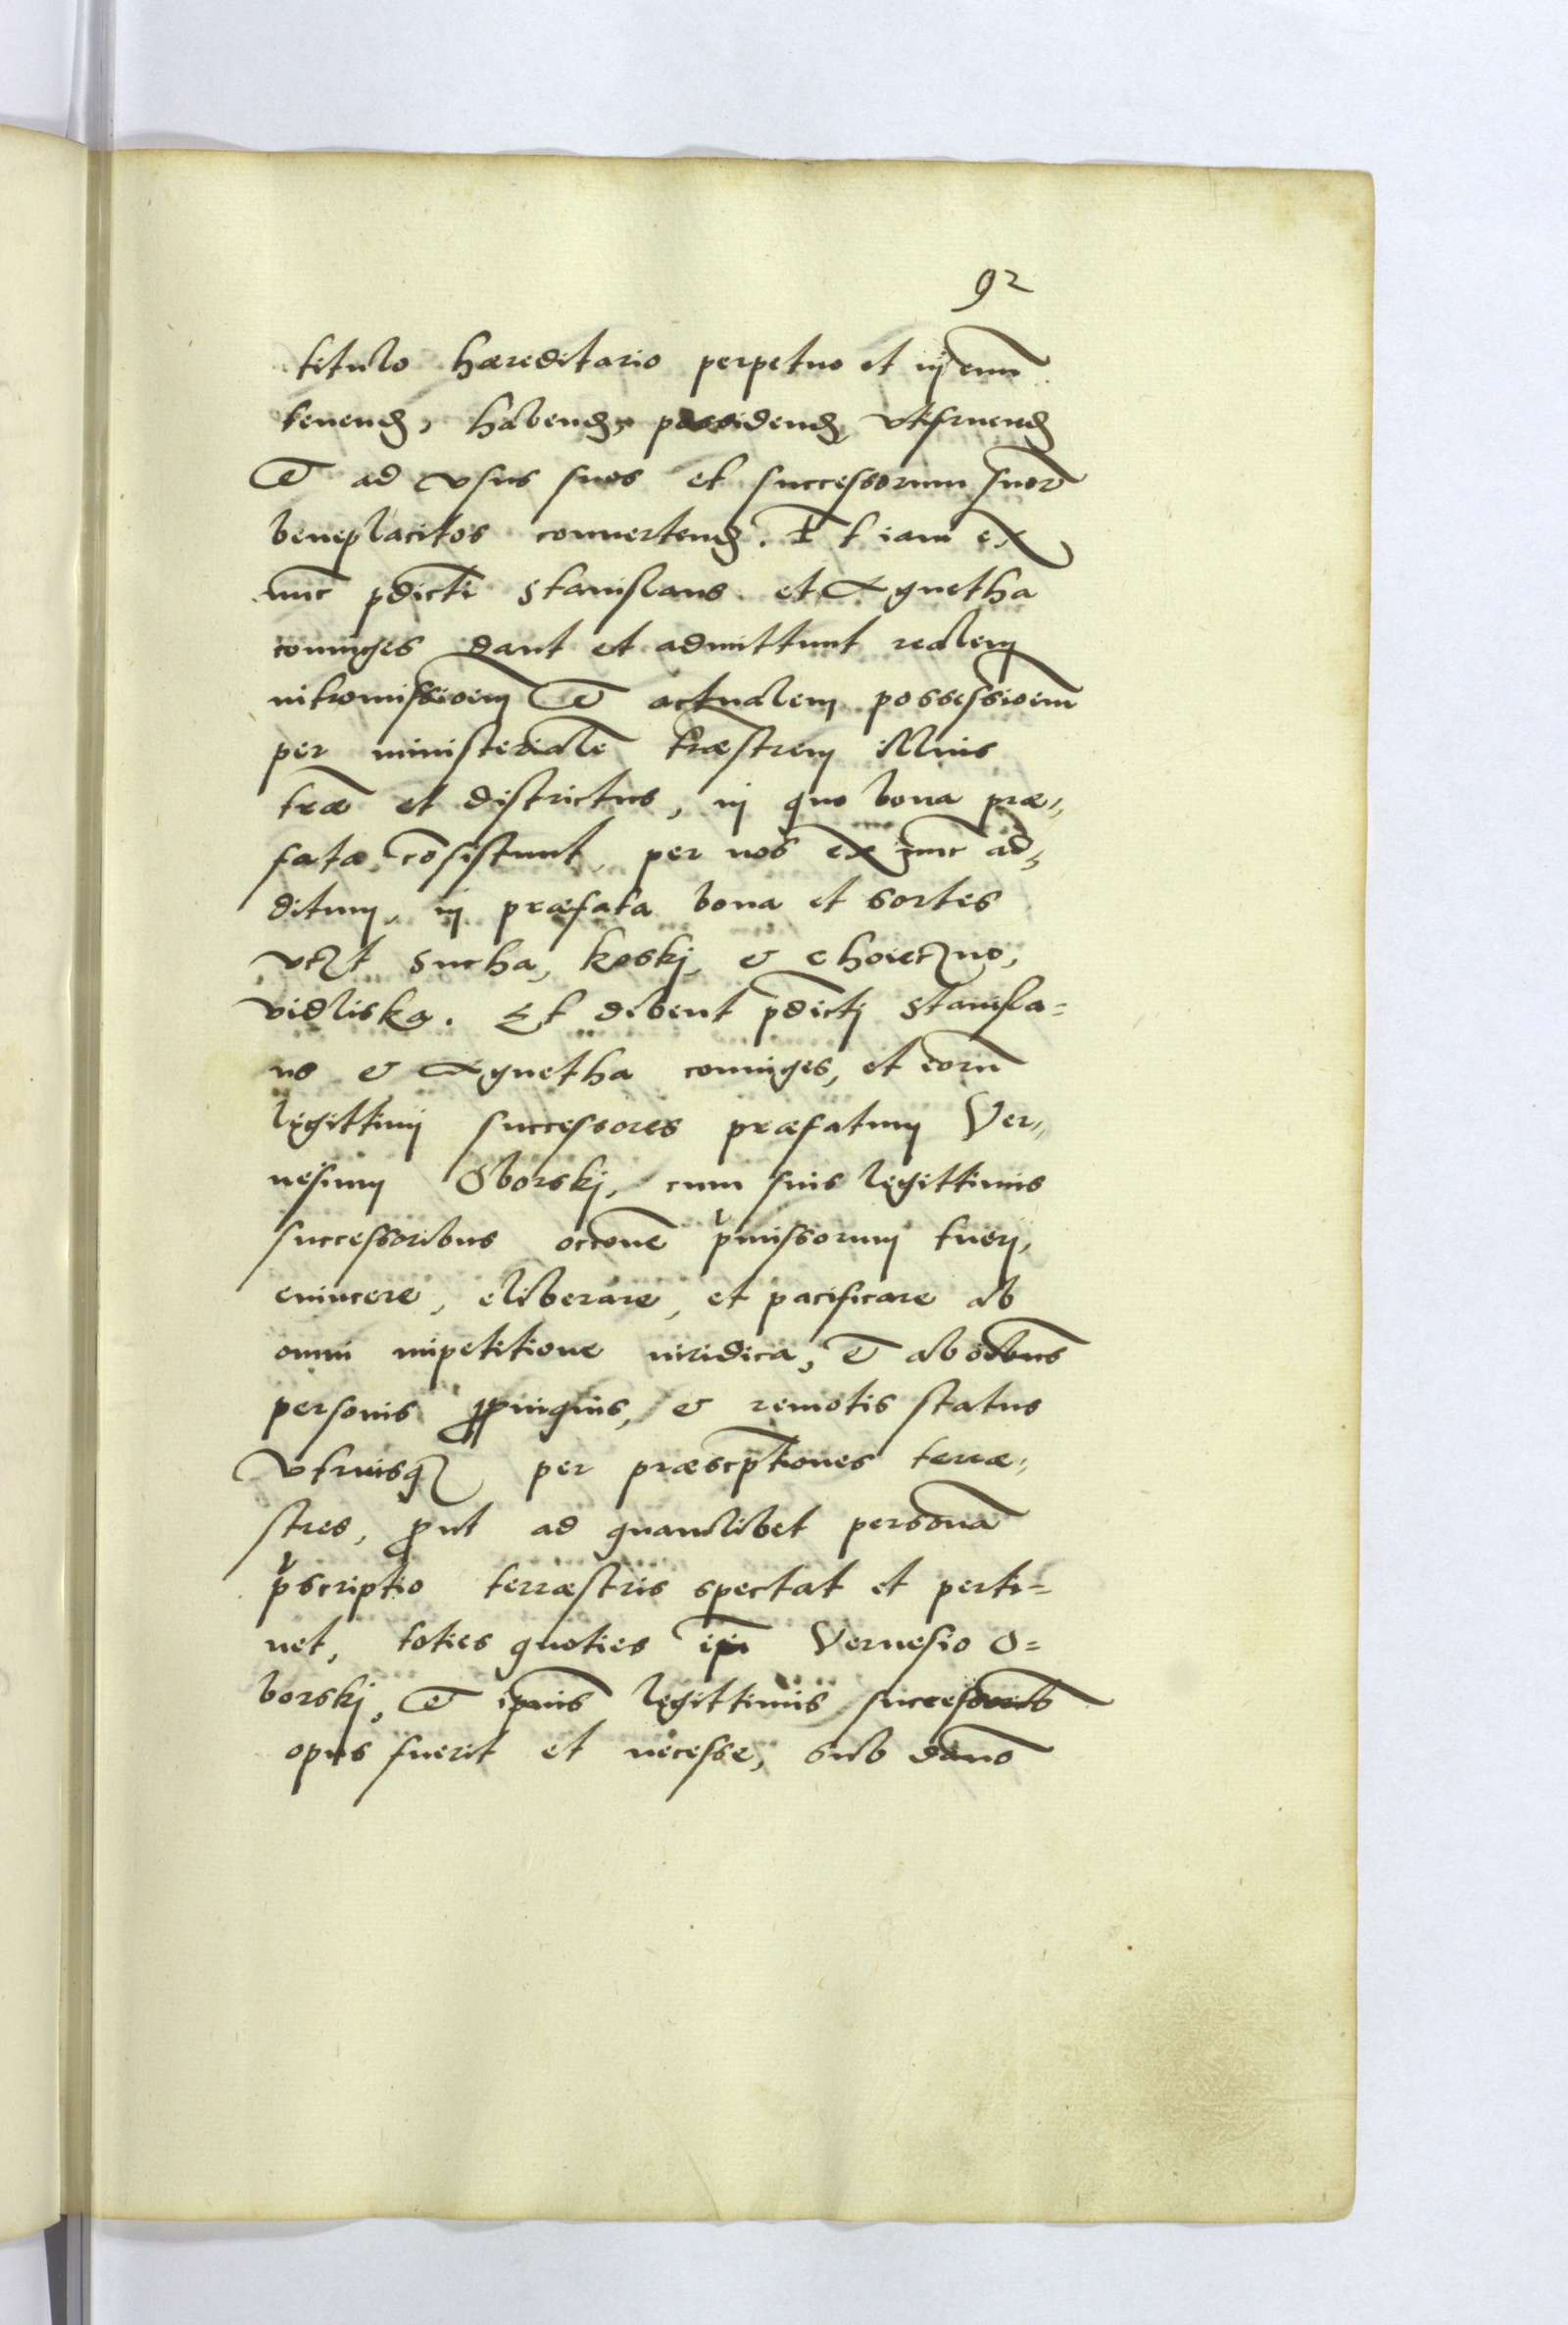 92
titulo hæreditario perpetuo et in eum̄
tenend, habend, possidend, vtifruend
Et ad vsus suos et successorum suor̄
beneplacitos conuertend. Et iam ex
nūc p̄dicti Stanislaus et Agnetha
coniuges dant et admittunt realem
intromissioem̄ Et actualem possessioem̄
per ministeriale̅ træstrem illius
træ et districtus, in quo bona præ„
fata cōsistunt, per nos ex nūc ad„
ditum, in præfata bona et sortes
vtzt Sucha, koski, & Choieczno,
vidliska. Et debent p̄dicti Stanisla=
us & Agnetha coniuges, et eorū
legittimi successores præfatum Ver„
nesium Oborskj, cum suis legittimis
successoribus occōne p̄missorum tueri,
euincere, eliberare, et pacificare ab
omni impetitione iuridica, Et ab oībus
personis ꝓpinquis, & remotis status
vtriusqꝫ per præscp̄tiones terræ„
stres, ꝓut ad quamlibet personā
p̄scriptio terræstris spectat et perti=
net, toties quoties ip̄i Vernesio O=
borskj, Et ip̄ius legittimis successorib
opus fuerit et necesse, sub dam̄o